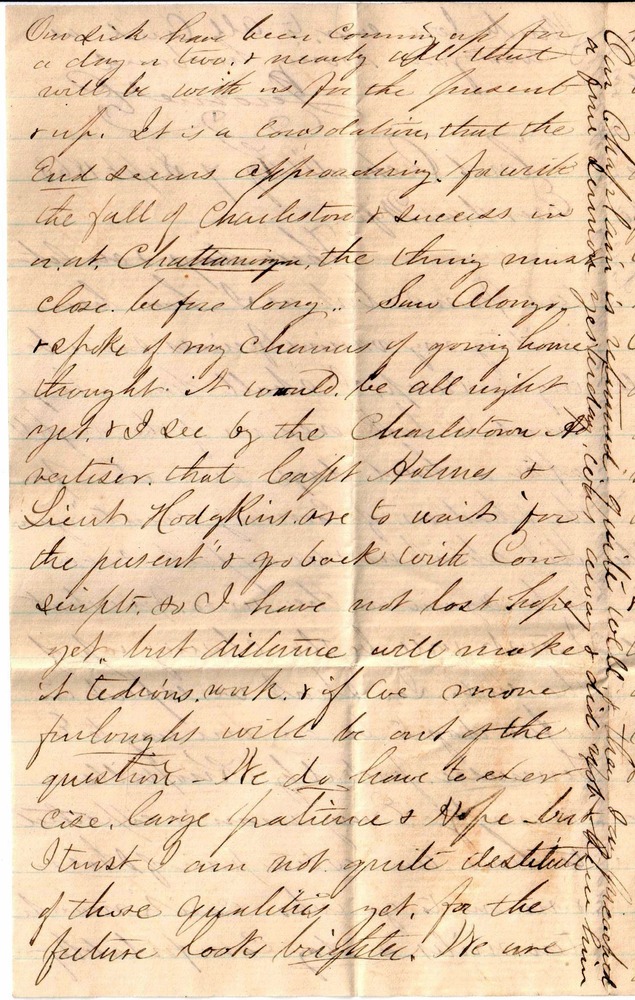 Our sick have been coming up for
a day or two. & nearly all that
will be with us for the present
& up. It is a Consolation, that the
End seems approaching. for with
the fall of Charleston & success in
or at, Chattanooga, the thing must
close before long. Saw Alonzo,
& spoke of my Chances of going home
thought it would be all right
yet. & I see by the Charlestown Ad
vertiser. that Capt Holmes &
Lieut Hodgkins. are to wait for
the present" & go back with Con
scripts. so I have not lost hope
yet. but distance will make
it tedious. work. & if we move
furloughs will be out of the
question - We do have to exer
cise. large patience & Hope but
I trust I am not quite destitute
of those qualities yet. for the
future looks brighter. We are
Our Chaplain is returned, quite well & they say preached
a fine sermon yesterday. I was away & did not hear him